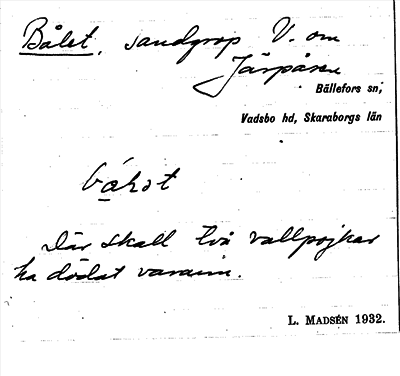 Bålet, sandgrop V. om
Järpåsen
Bällefors sn,
Vadsbo hd, Skaraborgs län
Där skall två vallpojkar
ha dödat varann.
L. MADSÉN 1932.